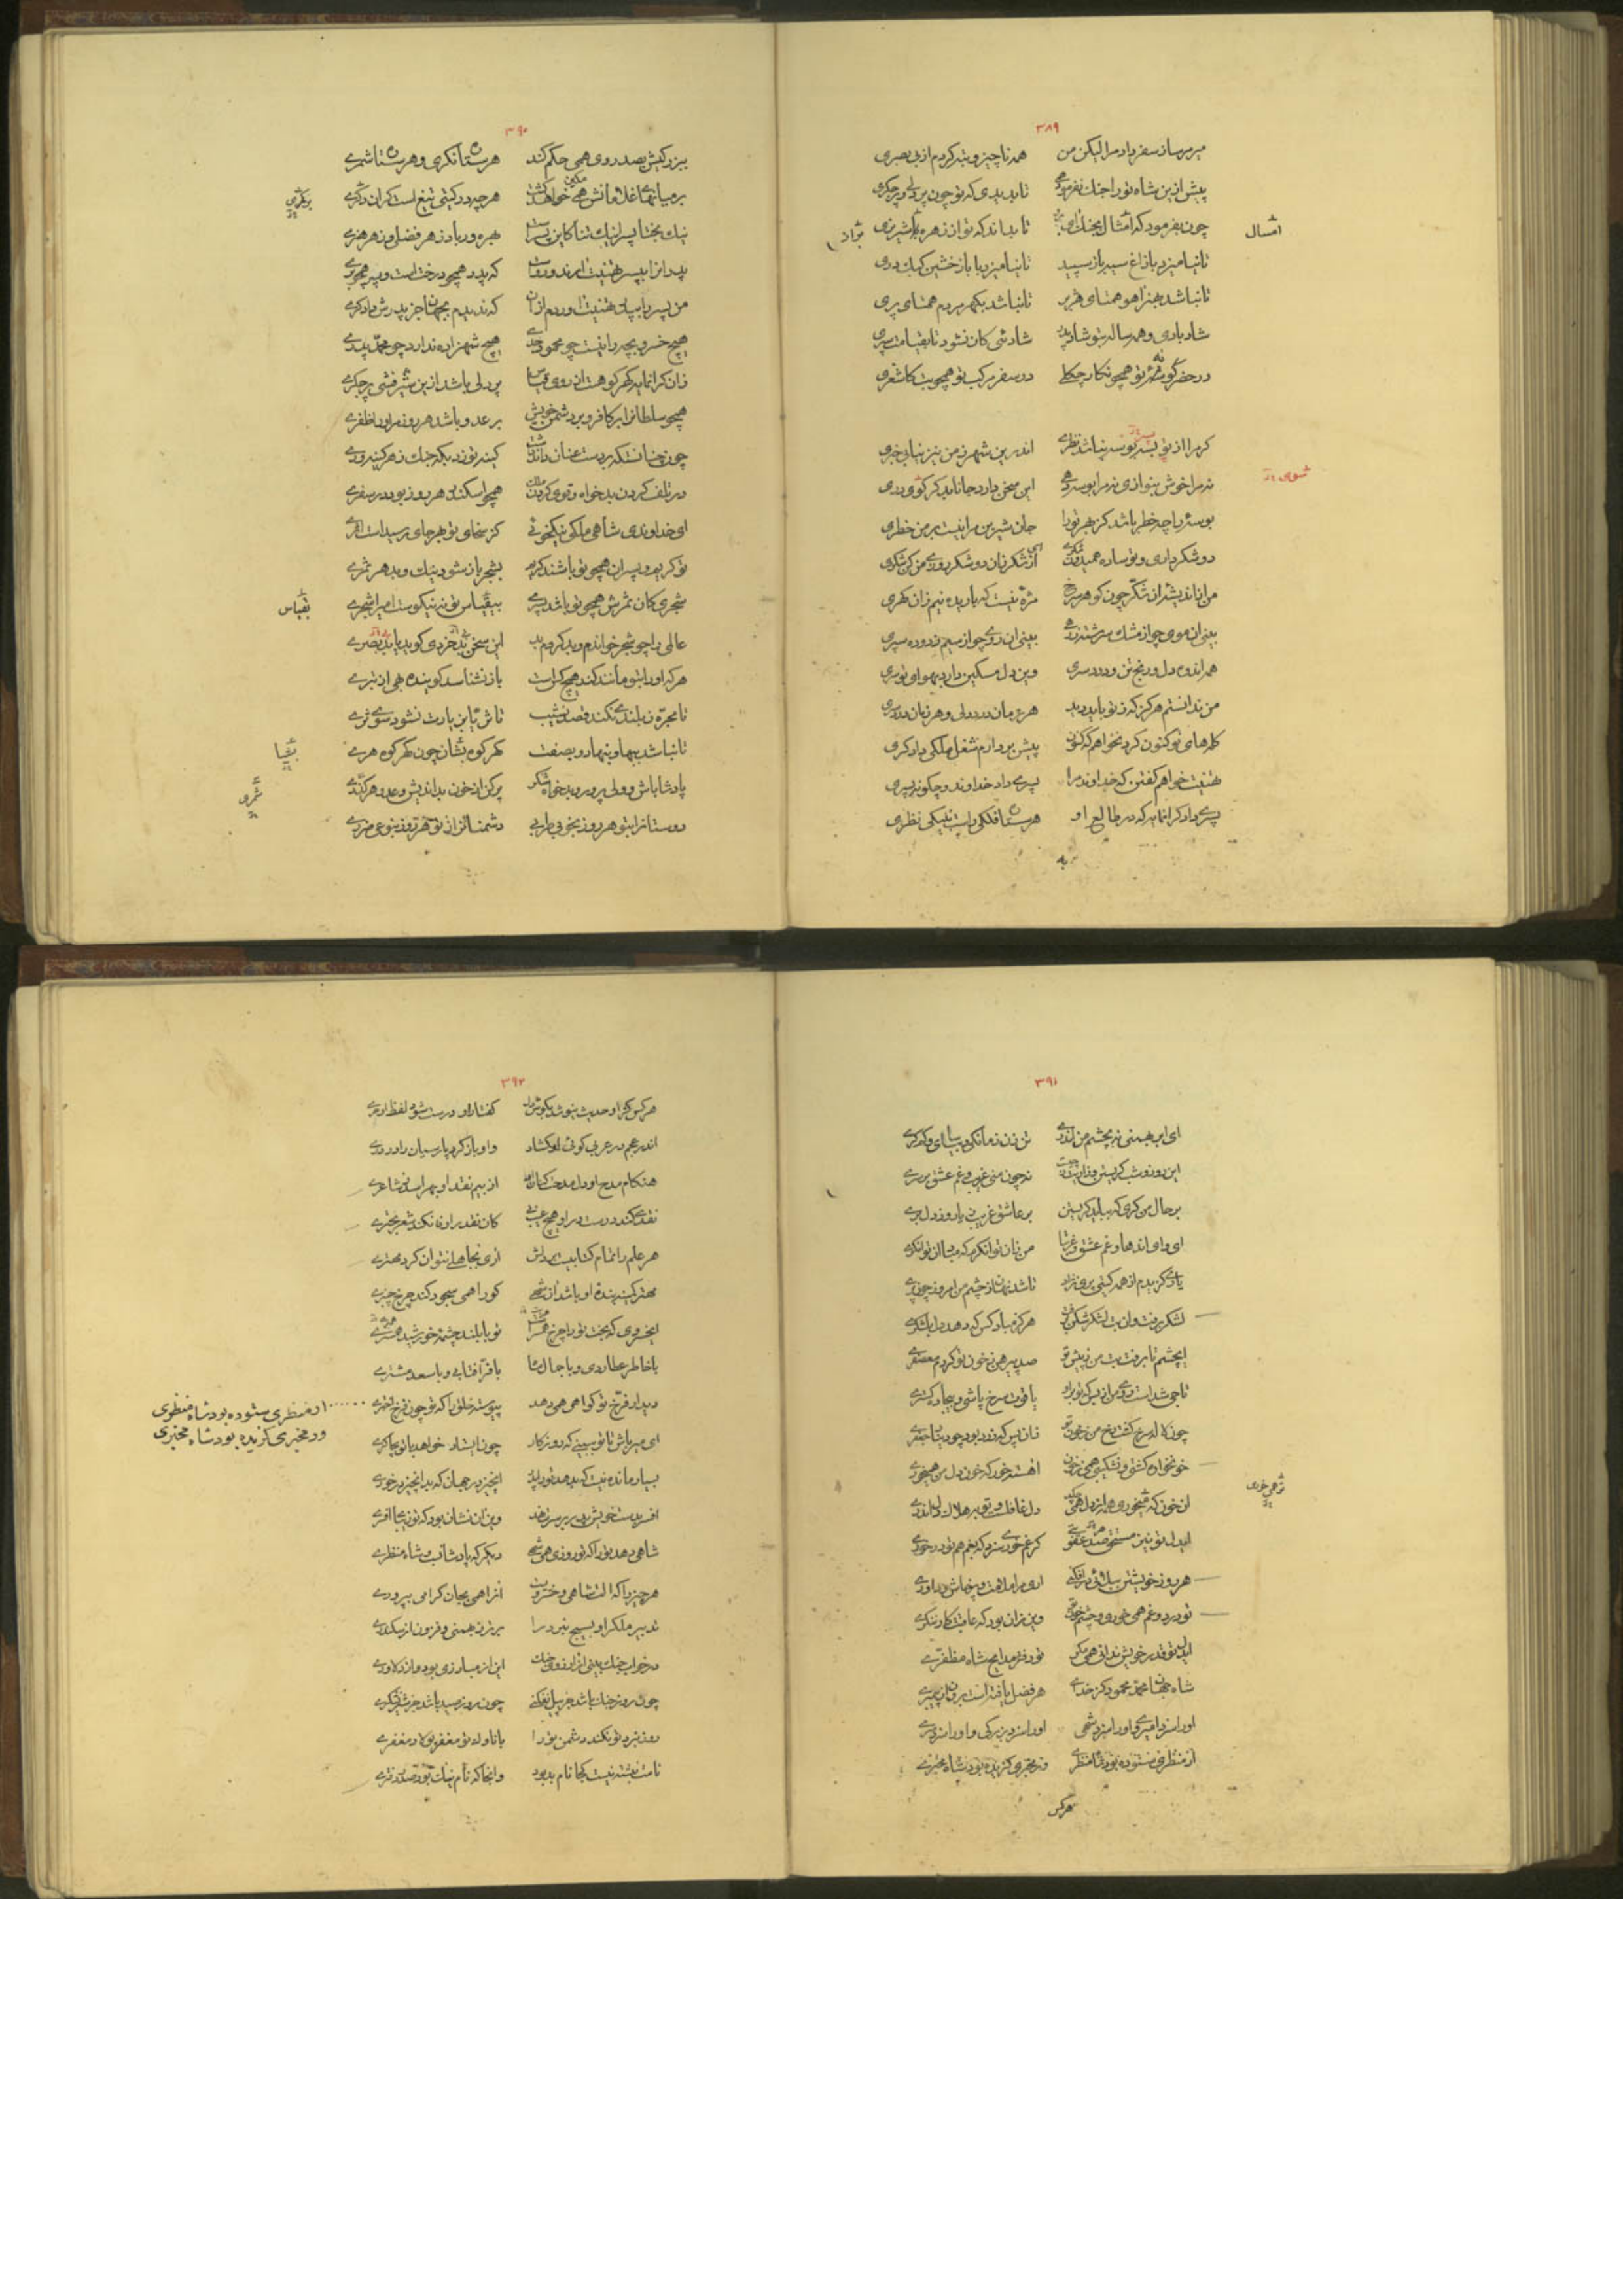 ۳۸۹
میر مرساز سفر داد مرا لیکن من همه ناچیز و تبه کردم از بی بصری
پیش ازین شاه تو را جنك نفرمود همی تا بدیدی که تو چون پر دلی و پر جگری
چون بفرمود که امثال بجنك آی تا بداند که تو از زهره شیر نری
امسال
نژاد
تا نیامیزد با زاغ سیه باز سپید تا نیامیزد با باز خشین كبك دری
تا نباشد بهنر آهو همتای هژبر تا نباشد بگهر مردم همتای پری
شاد بادی و همه ساله بتو شاد پدر شادئی کان نشود تا بقیامت سپری
در حضر گوشهٔ تو همچو نگار چگلی در سفر مرکب تو همچو بت کاشغری
گر مرا از تو بسه بوسه نباشد نظری اندرین شهر ز من نیز نیابی خبری
نه مرا خوش بنوازی نه مرا بوسه دهی این سخن دارد جانا بدگر کوی دری
شوی
بوسهٔ را چه خطر باشد کز بهر تو را جان شیرین مرا نیست بر من خطری
دو شکر داری و تو ساده همیدون شکری از شکر نان دو شکر روزی من کن شکری
من از اندیشهٔ آن شکر چون گوهر سرخ مژهٔ نیست که باریده نیم زان گهری
بینی آن موی چو از مشك سرشته زرهی بینی آن روی چو از سیم زدوده سپری
همه اندوه دل و رنج تن و درد سری وین دل مسکین دارد بهوای تو سری
من ندانستم هرگز که ز تو باید دید هر زمان درد دلی و هر زمان درد سری
گله های تو کنون کرد نخواهم که کنون پیش بردارم شغل ملکی دادگری
تهنیت خواهم گفتن که خداوند مرا پسری داد خداوند و چگونه پسری
پسری داد گرانمایه که در طالع او هرستاه فلکی راست بنیکی نظری
به
۳۹۰
ببزرگیش بصد روی همی حکم کند هرستاه نگری و هرستاه شمری
بر میانهای غلامانش همی خواهد گشت هر چه در گیتی تیغ است گران و کمری
بکمری
نیك بختا پسرا نیك تنا کاین پسر است بهره ور باد ز هر فضل و ز هر هنری
پدرانرا بپسر تهنیت آرند و رواست که پدر همچو درخت است و پسر همچو بری
من پسر را بپدر تهنیت آوردم از آن که ندیدم بجهان جز پدرش دادگری
هیچ خسرو بچه را نیست چو محمود جدی هیچ شهزاده ندارد چو محمد پدری
زان گرانمایه گهر کو هست از روی قیاس پر دلی باشد ازین شیر فشی پر جگری
همچو سلطانرا بر کافر و بر دشمن خویش بر عدو باشد هر روز مر او را ظفری
چون چنان شد که بدست عنان داند کینه توزد بگه جنك ز هر کینه وری
در تلف کردن بدخواه و قوی کردن ملك همچو اسکندر هر روز بود در سفری
ای خداوندی شاهی ملکی نیکخوئی کز سخای تو بهر جای رسیدست اثری
تو کریم و پسران همچو تو باشند کریم بشجر باز شود نیك و بد هر ثمری
شجری کان ثمرش همچو تو باشد پسری بقیاس تو نه نیکوست امیرا شجری
بقیاس
عالمی را چو شجر خواندم و بد کردم بد این سخن بی خردی گوید یا بی بصری
هر که او را بتو مانند کند هیچ کس است باز نشناسد گوینده بهی از بتری
تا مجره ز بلندی نکند قصد نشیب تا ثریا بزیارت نشود سوی ثری
تا نباشد ببها و بنهاد و بصفت گهر کوه بشان چون گهر کوه هری
بقیا
ثمری
پادشا باش و ولی پرور و بدخواه شکر پر کن از خون بداندیش و عدو هر کمری
دوستانرا بتو هر روز بنوعی طربی دشمنانرا ز تو هر روز بنوعی ضرری
۳۹۱
ای ابر بهمنی نه بچشم من اندری تن زن زمانکی و بیاسای و کم گری
این روز و شب گریستن زار زار چیست نه چون منی غریب و غم عشق بر سری
بر حال من گری که بباید گریستن بر عاشق غریب ز یار و ز دل بری
ای وای اندها و غم عشق و غربتا من زان توانگرم که مباد از توانگری
یاری گزیدم از همه گیتی پری نژاد تا شد نهان ز چشم من امروز چون پری
لشکر برفت و آن بت لشکر شکن برفت هرگز مباد کس که دهد دل بلشکری
ای چشم تا برفت بت من ز پیش تو صد پیرهن ز خون تو کردم معصفری
تا جمی شده است روی من از بس که تو بر او یاقوت سرخ پاشی و بیجاده گستری
چون لاله سرخ گشت رخ من ز خون تو زان پس که زرد بود چو دینار جعفری
خونخواره گشتی و نشکیبی همی ز خون آهسته خور که خون دل من همی خوری
زهی خوری
آن خون که میخوری همه از دل همی چکد دل غافلست و تو بهلاك دل اندری
ایدل تو نیز مستحق صد عقوبتی گر غم خوری سزد که بغم هم تو در خوری
هر روز خویشتن ببلائی در افکنی آری مرا ملامت و پرخاش و داوری
تو درد و غم همی خوری و چشم خون تو وین زان بود که عاقبت کار ننگری
ایدل تو قدر خویش ندانی همی مگر تو دفتر مدایح شاه مظفری
شاه جهان محمد محمود کز خدای هر فضل یافته است برون از پیمبری
او را سزد امیری و او را سزد شهی او را سزد بزرگی و او را سزد سری
از منظری ستوده بود شاه منظری وز مخبری گزیده بود شاه مخبری
هرکس
۳۹۲
هر کس کزاو حدیث نیوشد بگوش دل گفتار او درست شود لفظ او دری
اندر عجم در عربی گوئی او گشاد و او باز کرد پارسیان را در دری
هنگام مدح او دل مدحت کنان او از بیم نقد او بهراسد ز شاعری
نقدی کند درست و درو هیچ عیب نی کان نقد را وفا نکند شعر بحتری
هر علم را تمام کتابیست در دلش آری بجاهلی نتوان کرد مهتری
مهتر کسی که بنده او باشد از شهی کورا همی سجود کند چرخ چنبری
ای خسروی که بخت تو را چرخ همسر است تو با بلند چشمه خورشید همسری
با خاطر عطاردی و با جمال ماه با فر آفتابی و با سعد مشتری
دیدار فرخ تو گواهی همی دهد پیوسته خلق را که تو چون فرخ اختری
از منظری ستوده بود شاه منظری
ور مخبری گزیده بود شاه مخبری
ای میر باش تا تو ببینی که روزگار چون ایستاد خواهد با تو بچاکری
بسیار مانده نیست که بدهد تو را پدر آنچیز در جهان که بدانچیز در خوری
افسر بدست خویش پدر بر سرت نهد وین زان نشان بود که تو زیبای افسری
شاهی دهد تو را که تو روزی همی شهی دیگر که پادشانسب و شاه منظری
هر چیز را که آلت شاهی و خسرویست آنرا همی بجان گرامی بپروری
تدبیر ملك را و بسیج نبرد را برتر ز بهمنی و فزون از سکندری
در خواب جنك بینی از آرزوی جنك این از مبارزی بود و از دلاوری
چون روز جنك باشد جز پیل نفکنی چون روز صید باشد جز شیر نشکری
روز نبرد تو نکند دشمن تو را با ناوك تو مغفر پولاد مغفری
نامت نبشته نیست کجا نام بد بود و آنجا که نام نیك بود صدر دفتری